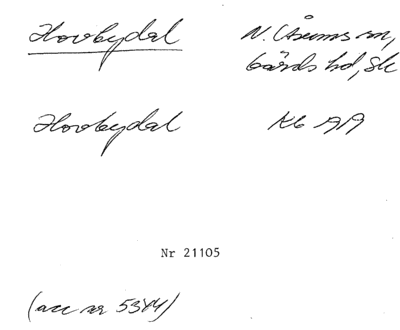 Hovbydal N. Åsums sn,
Gärds hd, Sk
Hovbydal Kb 1919
Nr 21105
(acc nr 5344)